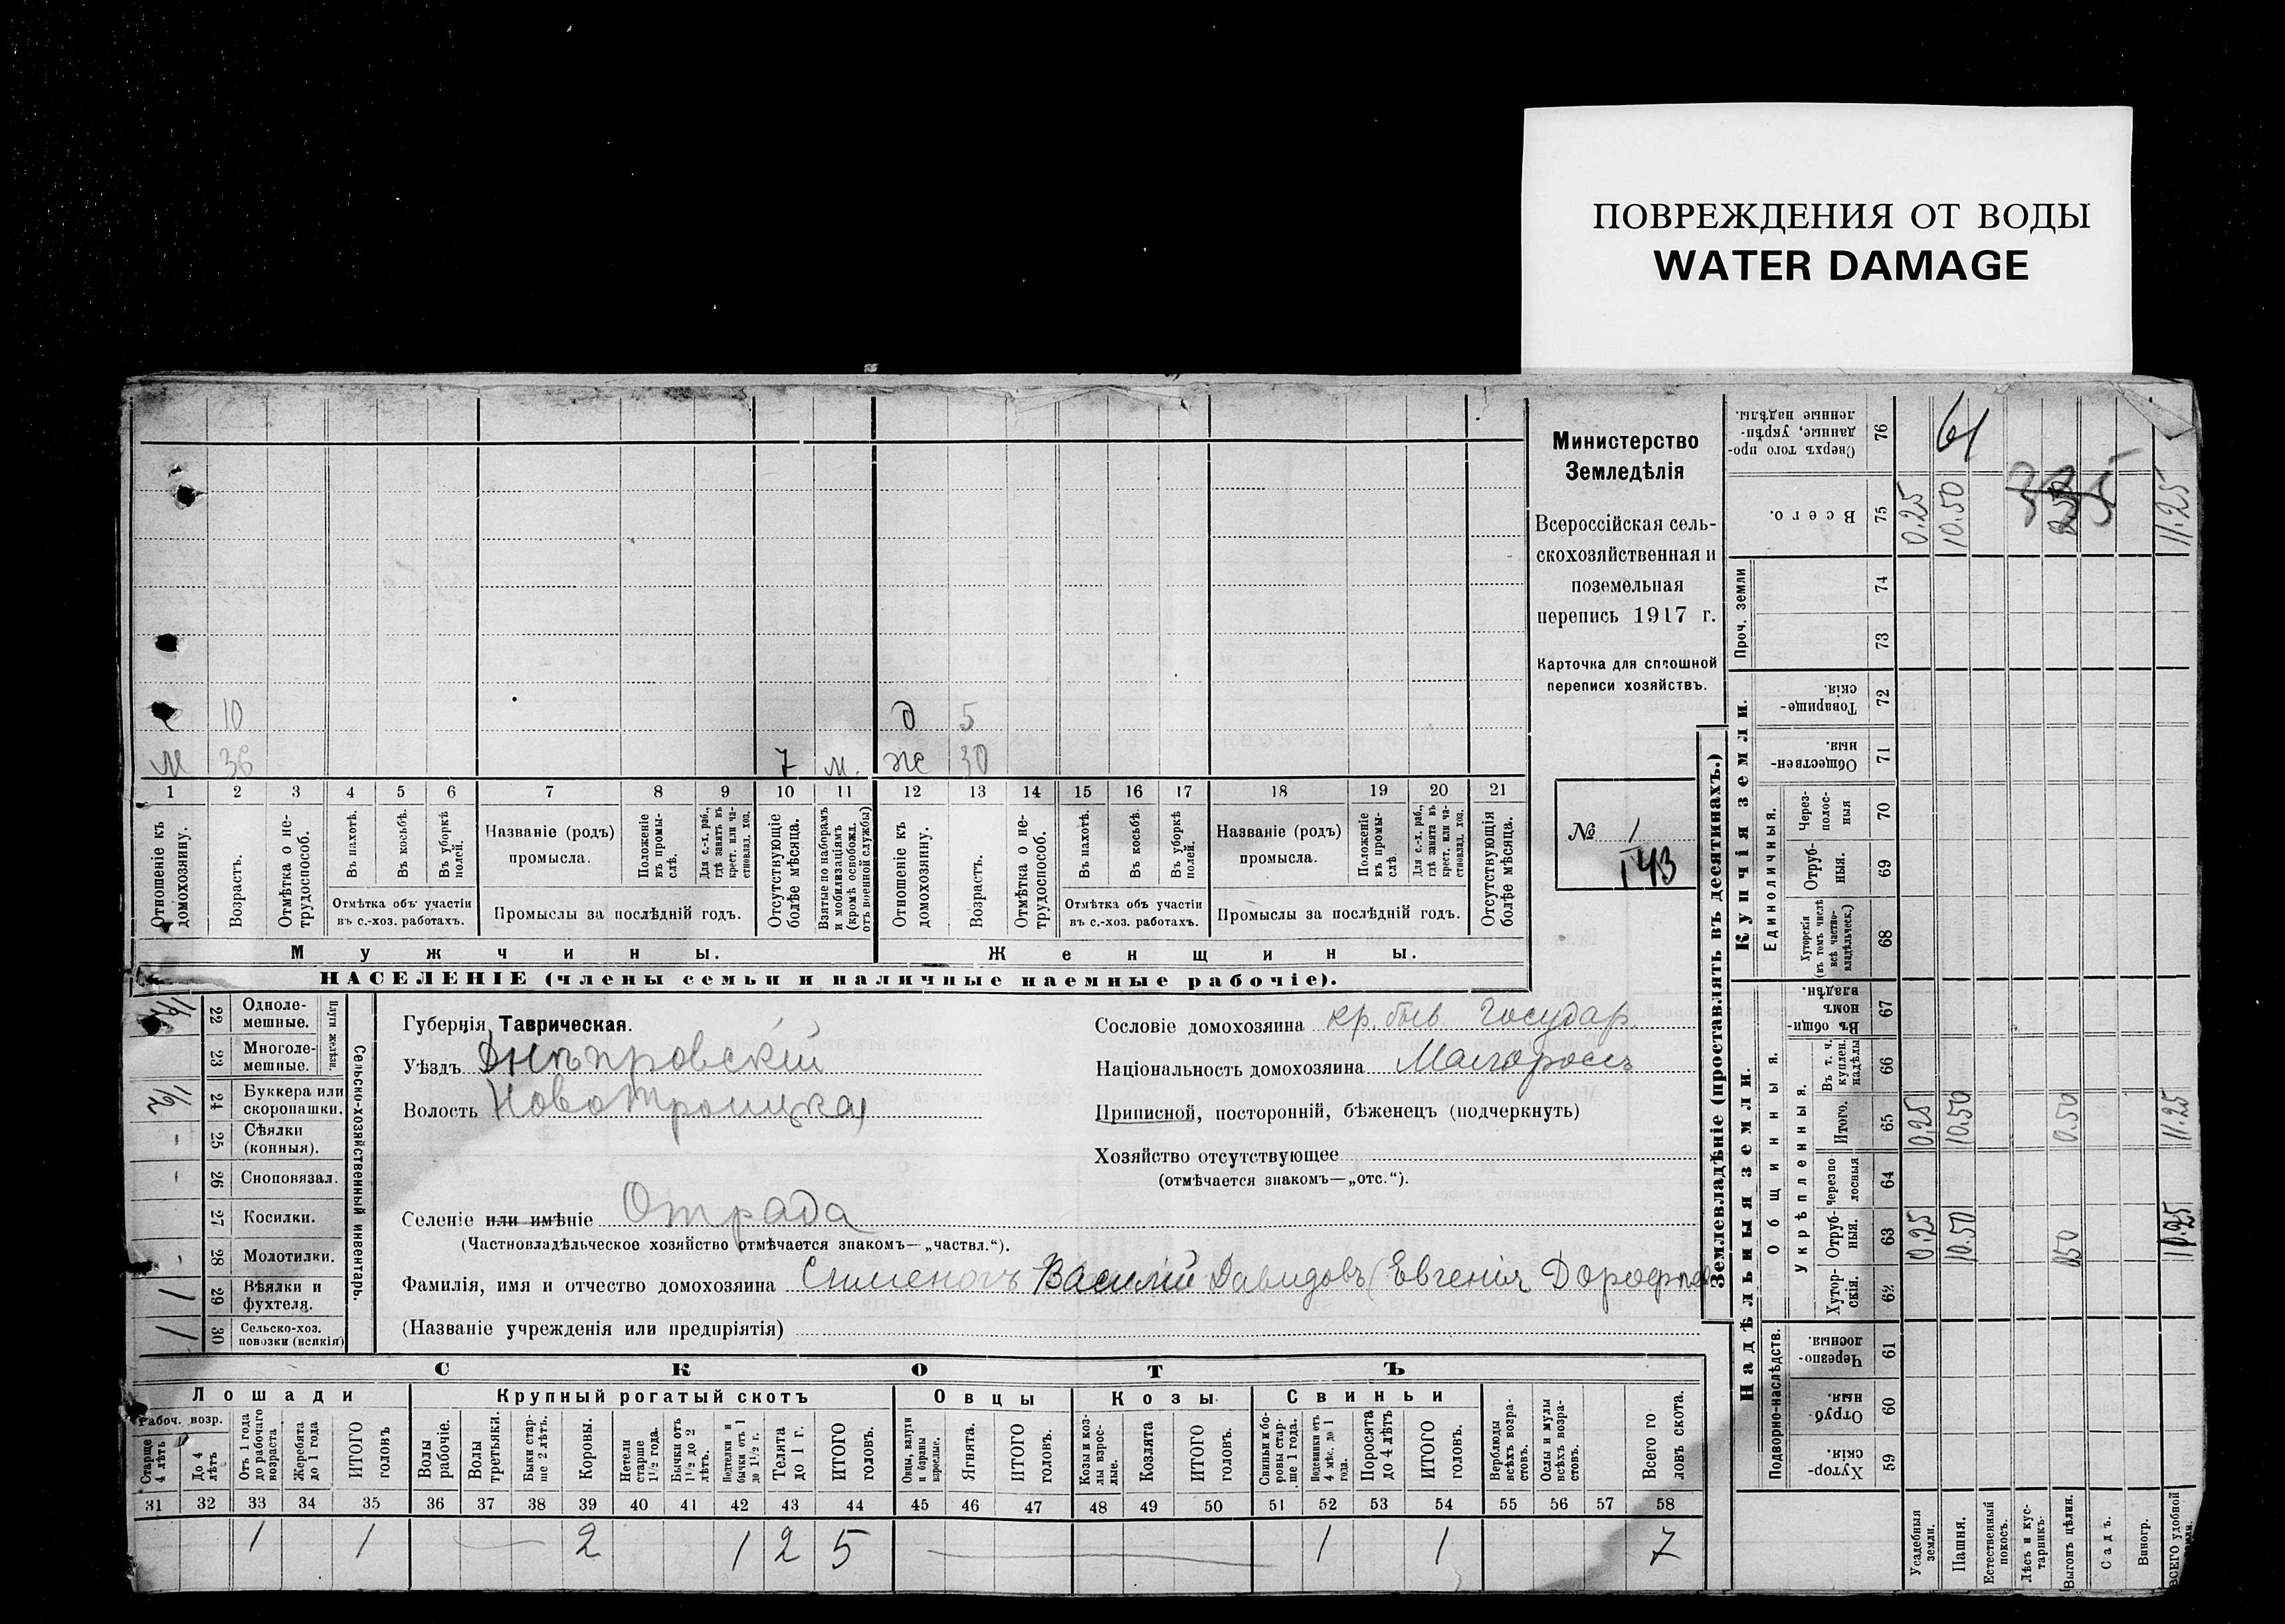 ПОВРЕЖДЕНИЯ ОТ ВОДЫ
WATER DAMAGE
Министерство
Земледѣлія
Всероссійская сель-
скохозяйственная и
поземельная
перепись 1917 г.
Карточка для сплошной
переписи хозяйствъ.
№ 1
143
10 д 5
м 36 7 м. же 30
1 2 3 4 5 6 7 8 9 10 11 12 13 14 15 16 17 18 19 20 21
Отношеніе къ домохозяину.
Возрастъ.
Отмѣтка о не-трудоспособ.
Въ пахотѣ.
Въ косьбѣ.
Въ уборкѣ полей.
Отмѣтка объ участіи въ с.-хоз. работахъ.
Названіе (родъ) промысла.
Положеніе въ промы-слѣ.
Для с.-х. раб., гдѣ занятъ въ крест. или ча-стновлад. хоз.
Промыслы за послѣдній годъ.
Отсутствующіе болѣе мѣсяца.
Взятые по наборамъ и мобилизаціямъ (кромѣ освобожд. отъ военной службы)
Отношеніе къ домохозяину.
Возрастъ.
Отмѣтка о не-трудоспособ.
Въ пахотѣ.
Въ косьбѣ.
Въ уборкѣ полей.
Отмѣтка объ участіи въ с.-хоз. работахъ.
Названіе (родъ) промысла.
Положеніе въ промы-слѣ.
Для с.-х. раб., гдѣ занята въ крест. или ча-стновлад. хоз.
Промыслы за послѣдній годъ.
Отсутствующія болѣе мѣсяца.
Мужчины. Женщины.
НАСЕЛЕНІЕ (члены семьи и наличные наемные рабочіе).
Сельско-хозяйственный инвентарь.
Плуги желѣзн.
22 Одноле-мешные.
23 Многоле-мешные.
1/2 24 Буккера или скоропашки.
25 Сѣялки (конныя).
26 Сноповязал.
27 Косилки.
28 Молотилки.
1 29 Вѣялки и фухтеля.
1 30 Сельско-хоз. повозки (всякія)
Губернія Таврическая.
Уѣздъ Днѣпровскій
Волость Новотроицкая
Селеніе или имѣніе Отрада
(Частновладѣльческое хозяйство отмѣчается знакомъ—„частвл.“).
Фамилія, имя и отчество домохозяина Василій Давидовъ (Евгенія Дорофѣев
(Названіе учрежденія или предпріятія)
Сословіе домохозяина кр. быв. Государ.
Національность домохозяина Малороссъ
Приписной, посторонній, бѣженецъ (подчеркнуть)
Хозяйство отсутствующее
(отмѣчается знакомъ—„отс.“).
СКОТЪ
Лошади Крупный рогатый скотъ Овцы Козы Свиньи
Рабоч. возр.
Старше 4 лѣтъ
До 4 лѣтъ
Отъ 1 года до рабочаго возраста
Жеребята до 1 года
ИТОГО головъ
Волы рабочіе.
Волы третьяки.
Быки стар-ше 2 лѣтъ.
Коровы.
Нетели старше 1 1/2 года.
Бычки отъ 1 1/2 до 2 лѣтъ.
Подтелки и бычки отъ 1 до 1 1/2 г.
Телята до 1 г.
ИТОГО головъ.
Овцы, валухи и бараны взрослые.
Ягнята.
ИТОГО головъ.
Козы и коз-лы взрос-лые.
Козлята
ИТОГО головъ.
Свиньи и бо-ровы стар-ше 1 года.
Подсвинки отъ 4 мѣс. до 1 года.
Поросята до 4 лѣтъ
ИТОГО головъ.
Верблюды всѣхъ возра-стовъ.
Ослы и мулы всѣхъ возра-стовъ.
Всего го-ловъ скота.
31 32 33 34 35 36 37 38 39 40 41 42 43 44 45 46 47 48 49 50 51 52 53 54 55 56 57 58
1 1 2 1 2 5 1 1 7
Землевладѣніе (проставлять въ десятинахъ.)
Купчія земли.
Надѣльныя земли.
Сверхъ того про-данные, укрѣп-ленные надѣлы. 76 61
Всего. 75 0.25 10.50 11.25
Проч. земли 74
73
Товарище-скія. 72
Обществен-ныя. 71
Единоличныя.
Через-полос-ныя 70
Отруб-ныя. 69
Хуторскія (въ томъ числѣ всѣ частно-владѣльческ.) 68
Общинныя.
Въ общи-номъ владѣн. 67
Укрѣпленныя.
Въ т. ч. куплен. надѣлы 66
Итого. 65 0.25 10.50 0.50 11.25
Черезпо-лосныя 64
Отруб-ныя. 63 0.25 10.50 050 11.25
Хутор-скія. 62
Подворно-наслѣдств.
Черезпо-лосныя 61
Отруб-ныя 60
Хутор-скія. 59
Усадебныя земли.
Пашня.
Естественный покосъ.
Лѣсъ и кус-тарникъ.
Выгонъ цѣлин.
Садъ.
Виногр.
ВСЕГО удобной земли.